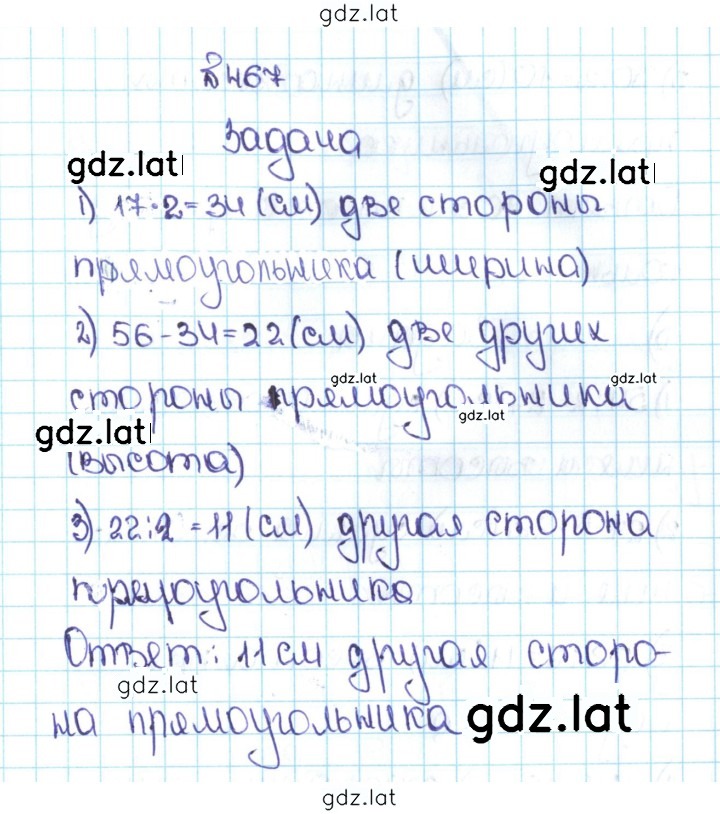 gdz.lat
№467
Задача
gdz.lat
gdz.lat
1) 17·2=34(см) две стороны
прямоугольника (ширина)
2) 56-34=22(см) две других
gdz.lat
gdz.lat
стороны прямоугольника
gdz.lat
gdz.lat
(высота)
3) 22:2=11(см) другая сторона
прямоугольника
Ответ: 11см другая сторо-
gdz.lat
на прямоугольника
gdz.lat
gdz.lat